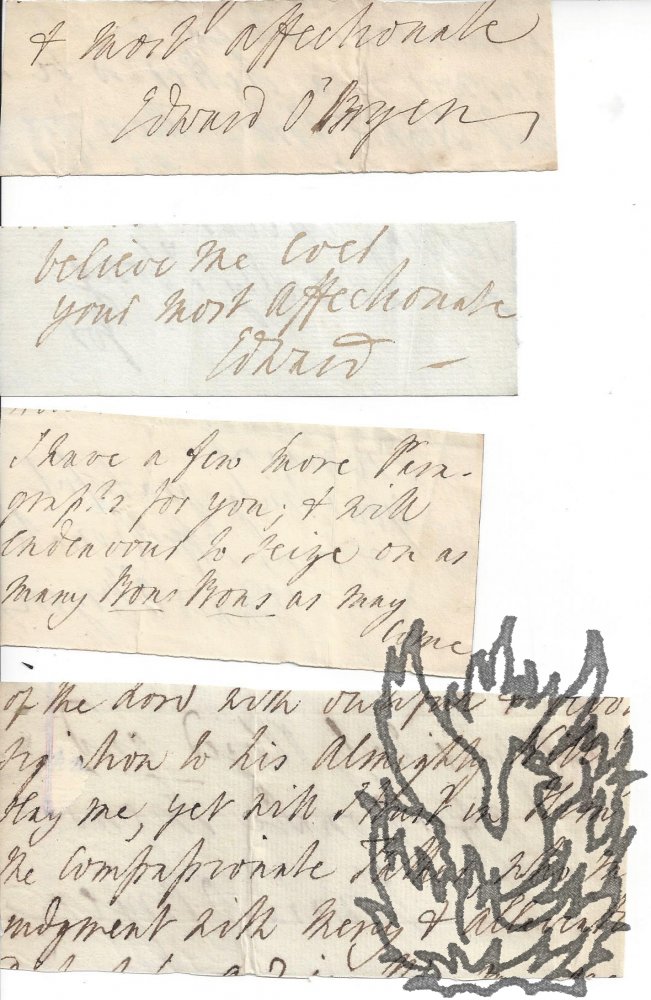 & most affectionate
Edward O'Bryen
believe me ever
your most affectionate
Edward
I have a few more Para-
graphs for you; & will
endeavour to seize on as
many Bons Bons as may
come
of the Lord with &
to his Almighty Will
slay me, yet will I trust in Him
the compassionate Father, who
judgment with Mercy &